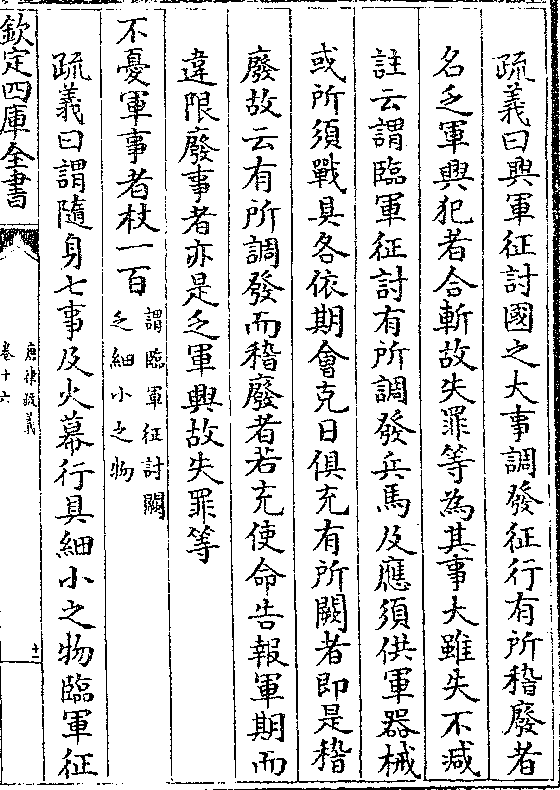 疏義曰興軍征討國之大事調發征行有所稽廢者
名乏軍興犯者合斬故失罪等為其事大雖失不減
註云謂臨軍征討有所調發兵馬及應須供軍器械
或所須戰具各依期會克日俱充有所闕者即是稽
廢故云有所調發而稽廢者若充使命告報軍期而
違限廢事者亦是乏軍興故失罪等
不憂軍事者杖一百
謂臨軍征討闕
乏細小之物
疏義曰謂隨身七事及火幕行具細小之物臨軍征
欽定四庫全書
唐律疏義
卷十六
十二